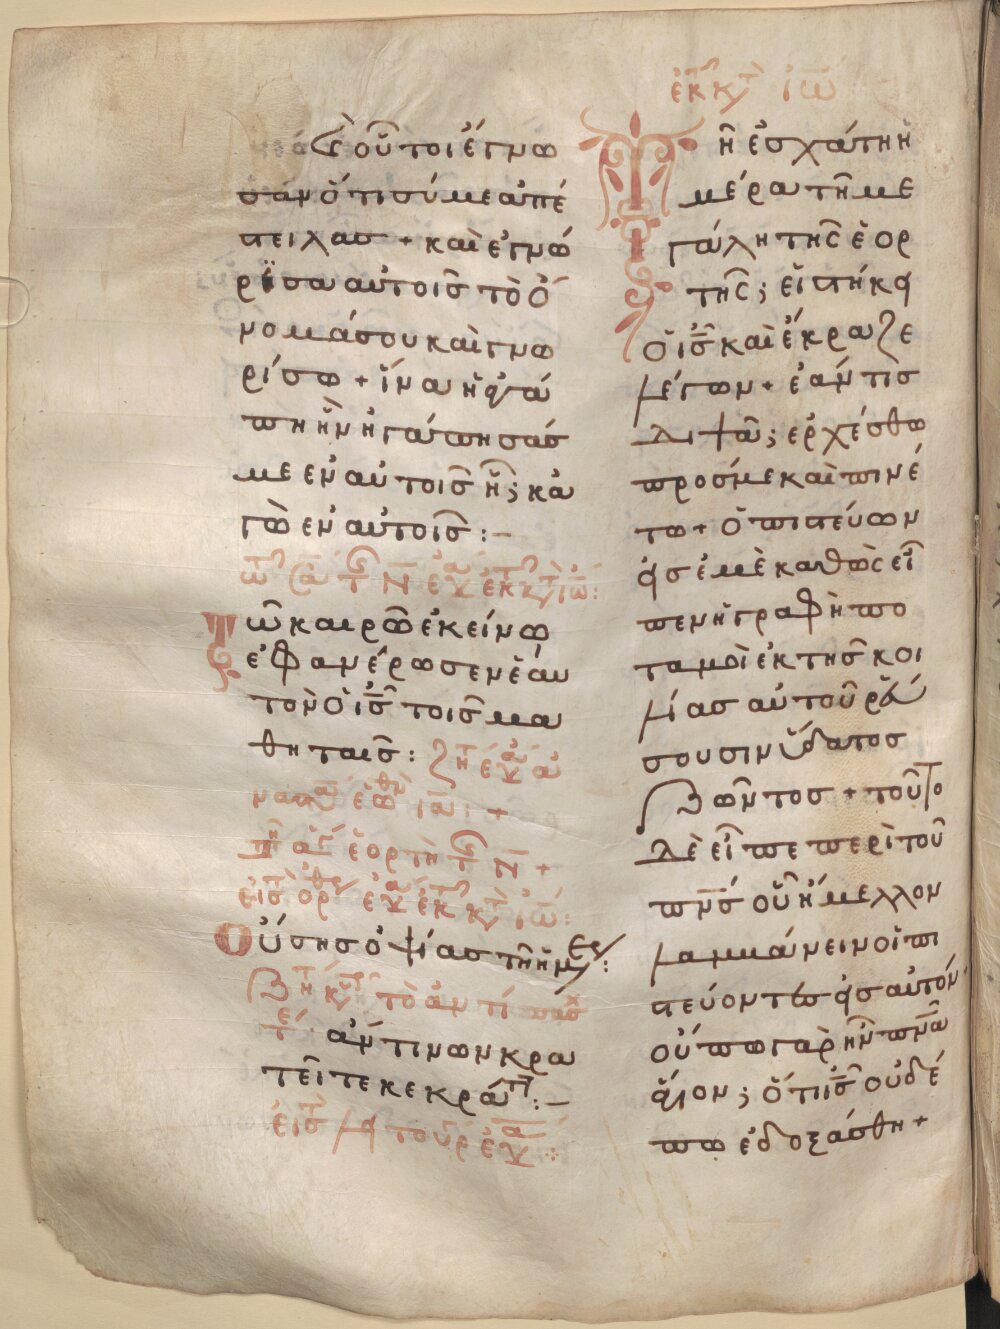 ἐκ κτ ἰω
σὲ οὗτοι ἔγνω
σαν ὅτι σύ με ἀπέ
στειλας + καὶ ἐγνώ
ρϊσα αὐτοῖς τὸ ὄ
νομά σου καὶ γνω
ρίσω + ἵνα ἡ ἀγά
πη ἣν ἠγάπησάσ
με ἐν αὐτοῖς ἦ; κα
γὼ ἐν αὐτοῖς :–
Τῶ καιρῶ ἐκείνω
ἐφανέρωσεν ἑαυ
τὸν ὁ ις τοῖς μα
θηταῖς :
Οὔσης ὀψίας τῆ ἡμε :
τὸ ἀντί πασχ
ἄν τινων κρα
τεῖτε κεκράτη :–
Τῆ ἐσχάτη ἡ
μέρα τῆ με
γάλη τῆς ἑορ
τῆς; εἱστήκει
ὁ ις καὶ ἔκραζε
λέγων + ἐάν τισ
διψᾶ; ἐρχέσθω
πρόσ με καὶ πινέ
τω + ὁ πιστεύων
εἰς ἐμὲ καθὼς εἶ
πεν ἡ γραφὴ πο
ταμοὶ ἐκ τῆς κοι
λίας αὐτοῦ ρεύ
σουσιν ὕδατος
ζῶντος + τοῦτο
δὲ εἶπε περὶ τοῦ
πνς οὗ ἤμελλον
λαμβάνειν οἱ πι
στεύοντες εἰς αὐτόν
οὔπω γὰρ ἦν πνα
ἅγιον; ὅτι ις οὐδέ
πω ἐδοξάσθη +